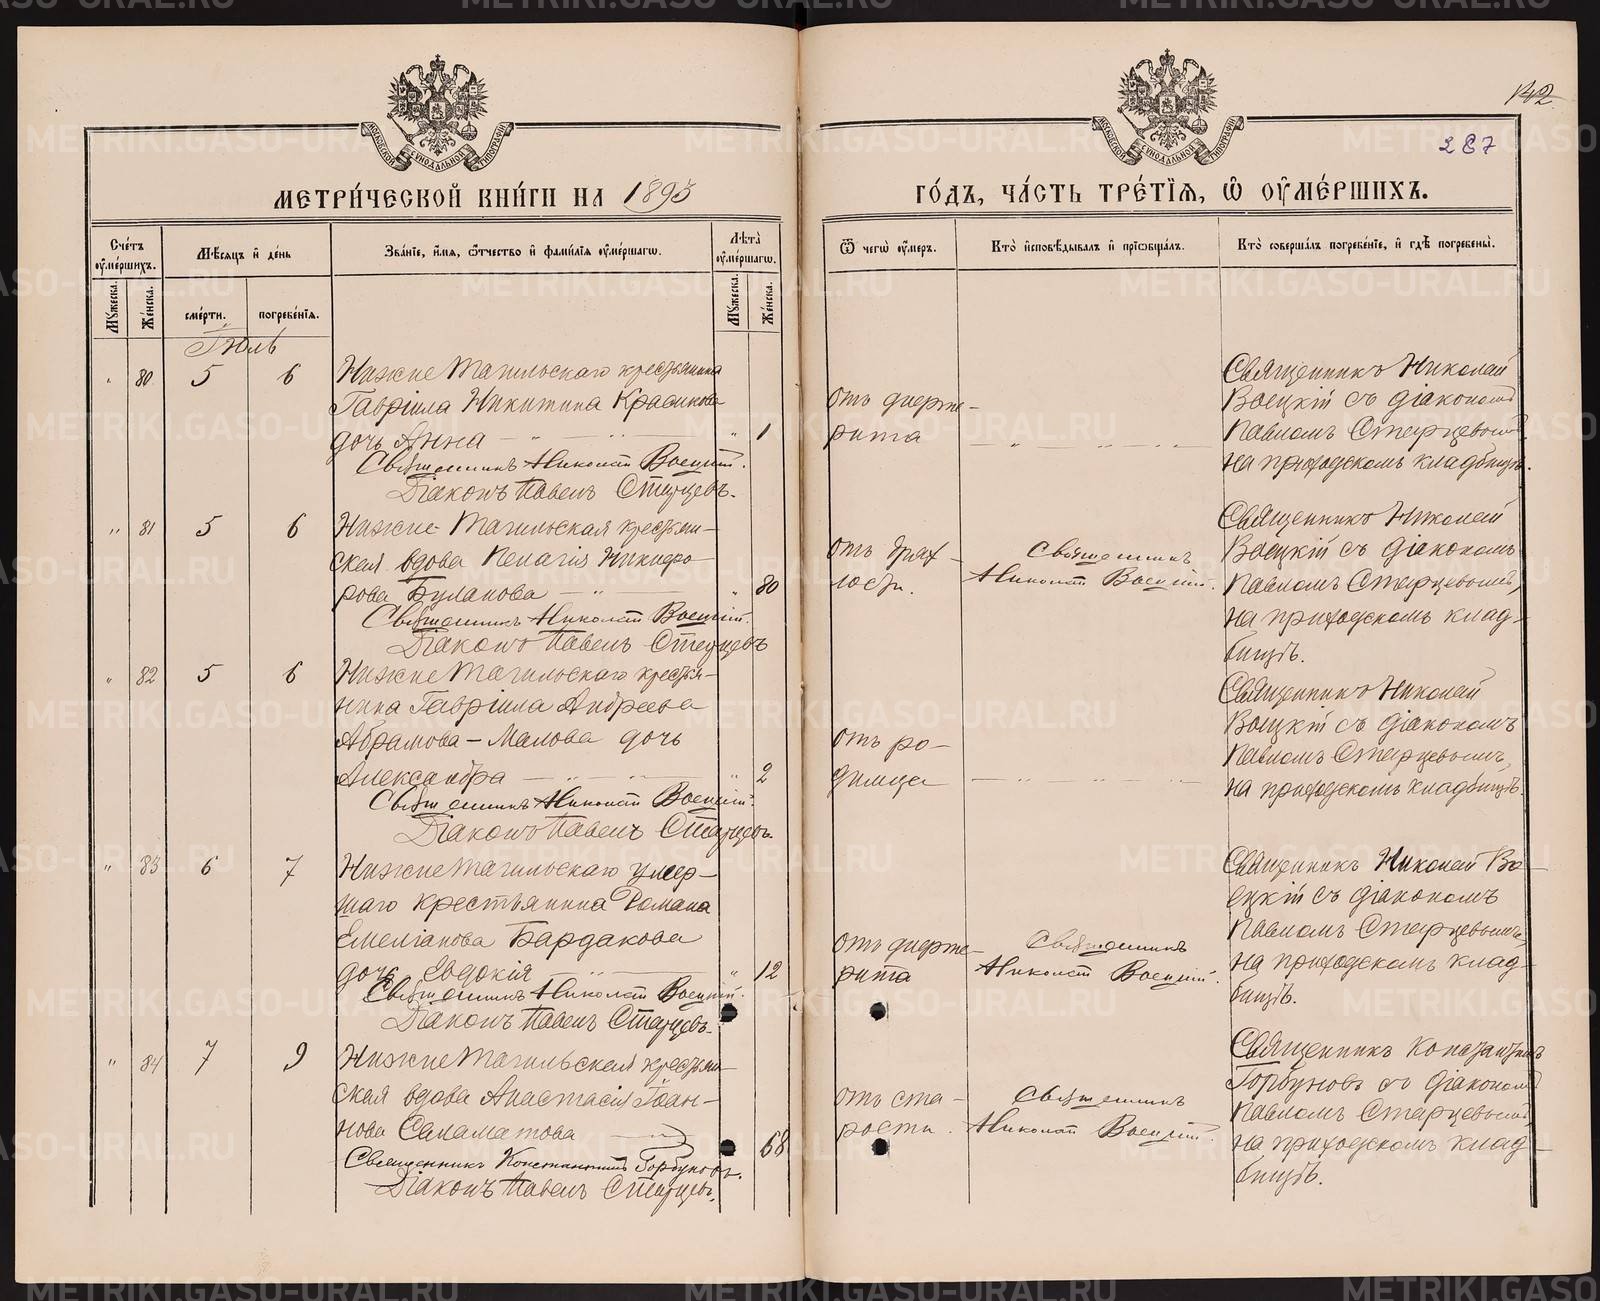 142
287
МОСКОВСКОЙ СѴНОДАЛЬНОЙ ТИПОГРАФІИ
МОСКОВСКОЙ СѴНОДАЛЬНОЙ ТИПОГРАФІИ
МЕТРИ́ЧЕСКОЙ КНИ́ГИ НА 1893
ГО́ДЪ, ЧА́СТЬ ТРЕ́ТІѦ, Ѡ ОУМЕ́РШИХЪ.
Сче́тъ оуме́ршихъ.
Мꙋжеска.
Же́нска.
Мѣ́сяцъ и де́нь
сме́рти.
погребе́нїѧ.
Зва́нїе, и́мѧ, ѻ҆́тчество и фами́лїѧ оуме́ршагѡ.
Лѣта̀ оуме́ршагѡ.
Мꙋжеска.
Же́нска.
Ѿ чегѡ̀ оу́меръ.
Кто̀ и҆сповѣ́дывалъ и҆ прїѡбща́лъ.
Кто̀ соверша́лъ погребе́нїе, и҆ гдѣ̀ погребены̀.
Іюль
" 80 5 6
Нижне Тагильскаго крестьянина
Гавріила Никитина Красикова
дочь Анна — " — " — " 1
Священникъ Николай Воецкій.
Діаконъ Павелъ Старцевъ.
отъ дифте-
рита
— " — " — " —
Священникъ Николай
Воецкій съ діакономъ
Павломъ Старцевымъ,
на приходскомъ кладбищѣ.
" 81 5 6
Нижне-Тагильская крестьян-
ская вдова Пелагія Никифо-
рова Буланова — " — " 80
Священникъ Николай Воецкій.
Діаконъ Павелъ Старцевъ
отъ дрях-
лости.
Священникъ
Николай Воецкій.
Священникъ Николай
Воецкій съ діакономъ
Павломъ Старцевымъ,
на приходскомъ клад-
бищѣ.
" 82 5 6
Нижне Тагильскаго крестья-
нина Гавріила Андреева
Абрамова-Малова дочь
Александра — " — " — " 2
Священникъ Николай Воецкій.
Діаконъ Павелъ Старцевъ.
отъ ро-
димца
— " — " — " —
Священникъ Николай
Воецкій съ діакономъ
Павломъ Старцевымъ,
на приходскомъ кладбищѣ.
" 83 6 7
Нижне Тагильскаго умер-
шаго крестьянина Романа
Емеліанова Бардакова
дочь Евдокія — " — " 12
Священникъ Николай Воецкій.
Діаконъ Павелъ Старцевъ.
отъ дифте-
рита
Священникъ
Николай Воецкій.
Священникъ Николай Во-
ецкій съ діакономъ
Павломъ Старцевымъ,
на приходскомъ клад-
бищѣ.
" 84 7 9
Нижне Тагильская крестьян-
ская вдова Анастасія Іоан-
нова Саламатова — " — 68
Священникъ Константинъ Горбуновъ.
Діаконъ Павелъ Старцевъ.
отъ ста-
рости.
Священникъ
Николай Воецкій.
Священникъ Константинъ
Горбуновъ съ діакономъ
Павломъ Старцевымъ,
на приходскомъ клад-
бищѣ.
METRIKI.GASO-URAL.RU